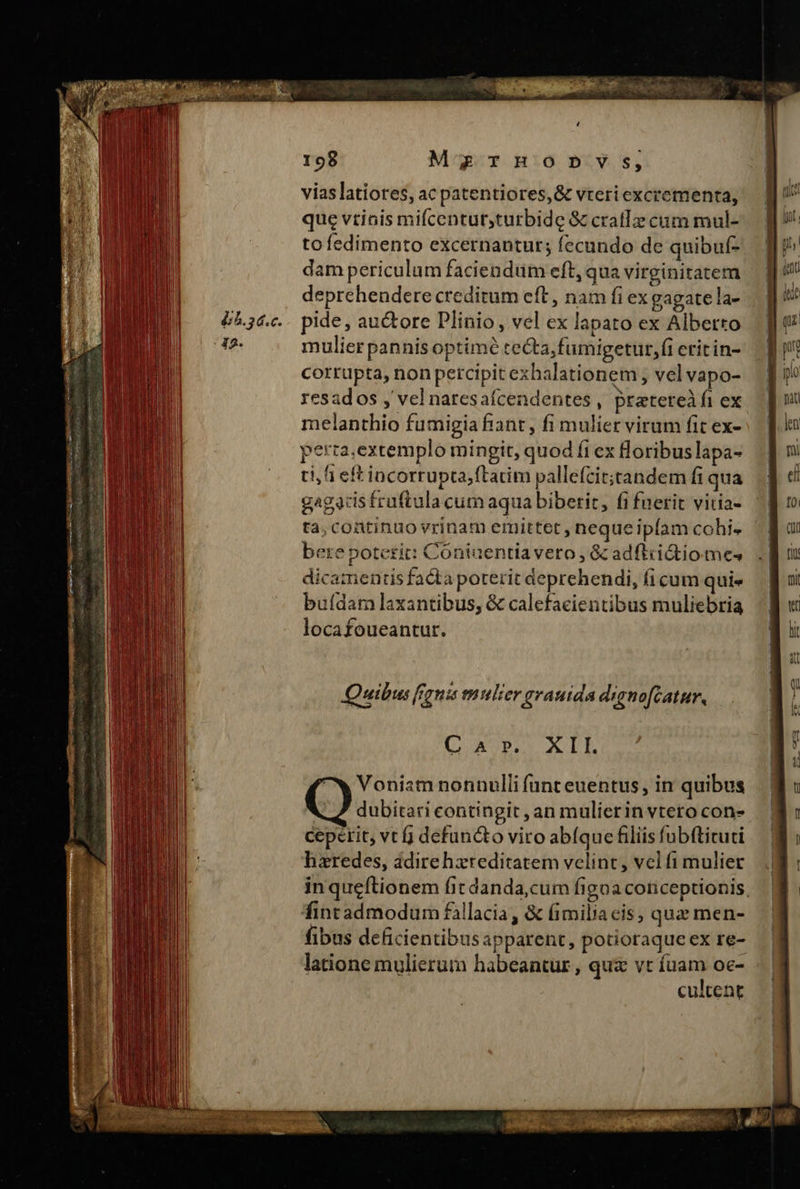 198 METHODVS,
vias latiores, ac patentiores, & vteri excrementa,
quę vrinis miſcentur, turbidę & craſſæ cum mul-
to ſedimento excernantur; ſecundo de quibuſ-
dam periculum faciendum eſt, qua virginitatem
deprehendere creditum eſt, nam ſi ex gagate la-
lib. 36. c.
19.
pide, auctore Plinio, vel ex lapato ex Alberto
mulier pannis optimè tecta, fumigetur, ſi erit in-
corrupta, non percipit exhalationem, vel vapo-
res ad os, vel nares aſcendentes, prætereà ſi ex
melanthio fumigia fiant, ſi mulier virum ſit ex-
perta, extemplo mingit, quod ſi ex floribus lapa-
ti, ſi eſt incorrupta, ſtatim palleſcit; tandem ſi qua
gagatis fruſtula cum aqua biberit, ſi fuerit vitia-
ta, continuo vrinam emittet, neque ipſam cohi-
bere poterit: Coniuentia vero, & adſtrictio me-
dicamentis facta poterit deprehendi, ſi cum qui-
buſdam laxantibus, & calefacientibus muliebria
loca foueantur.
Quibus ſignis mulier grauida dignoſcatur.
CAP. XII.
QVoniam nonnulli ſunt euentus, in quibus
dubitari contingit, an mulier in vtero con-
ceperit, vt ſi defuncto viro abſque filiis ſubſtituti
hæredes, adire hæreditatem velint, vel ſi mulier
in queſtionem ſit danda, cum ſigna conceptionis
ſint admodum fallacia, & ſimilia eis, quæ men-
ſibus deficientibus apparent, potioraque ex re-
latione mulierum habeantur, quæ vt ſuam oc-
cultent